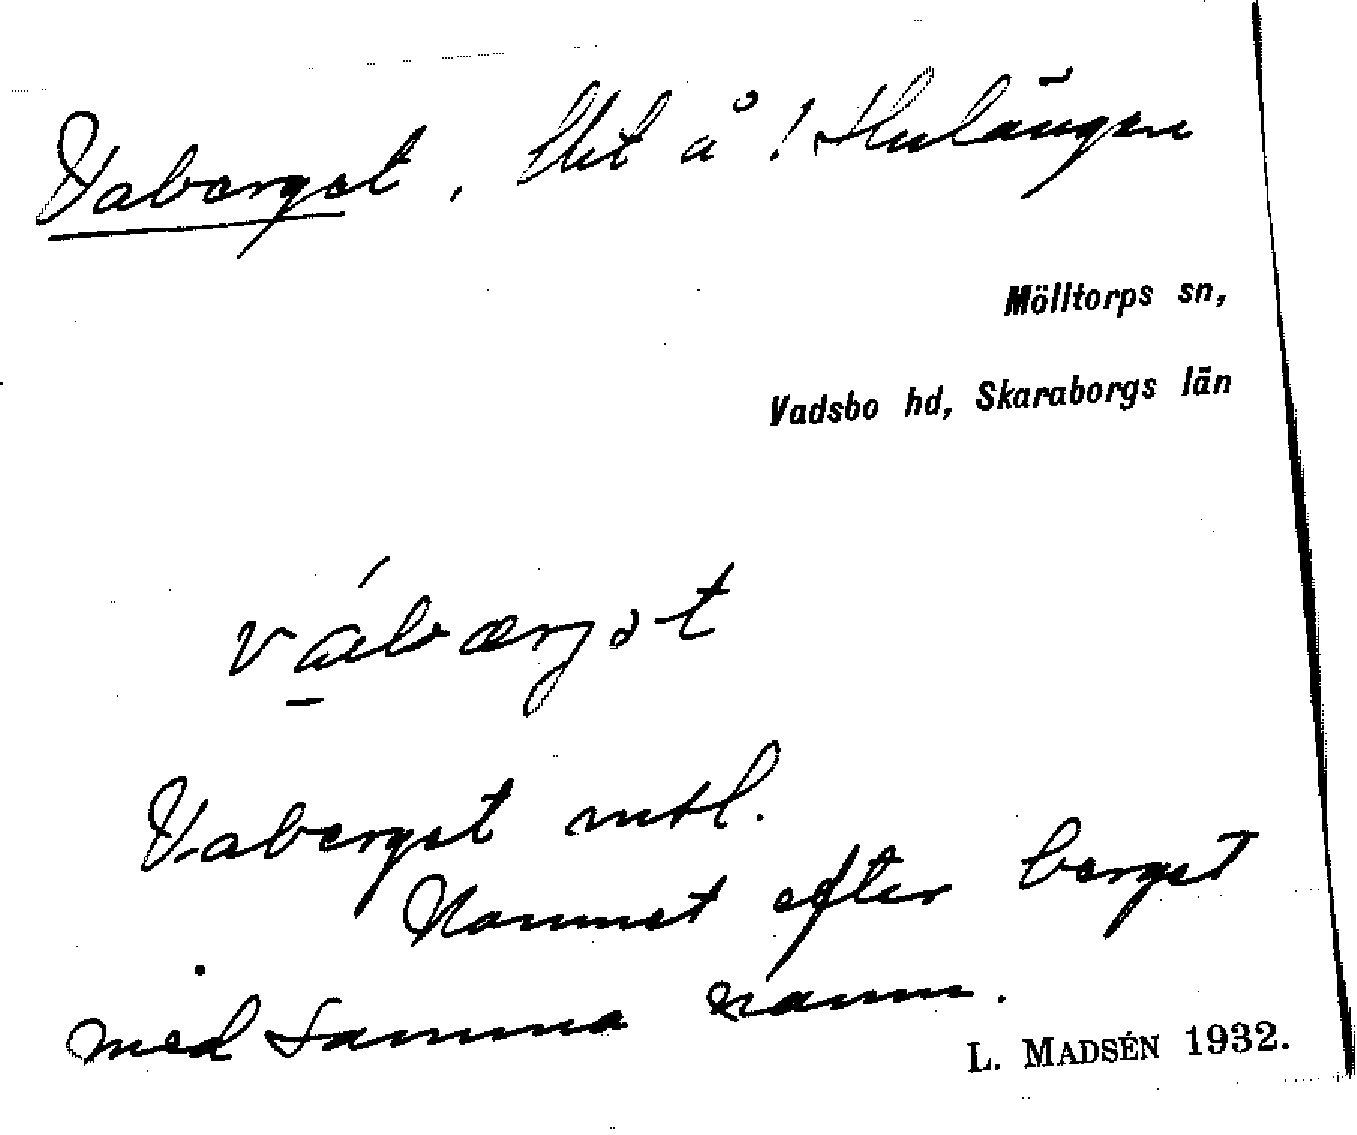 Vaberget, lht å ! Hulängen
Mölltorps sn,
Vadsbo hd, Skaraborgs län
Vaberget mtl.
Namnet efter berget
med samma namn.
L. MADSÉN 1932.